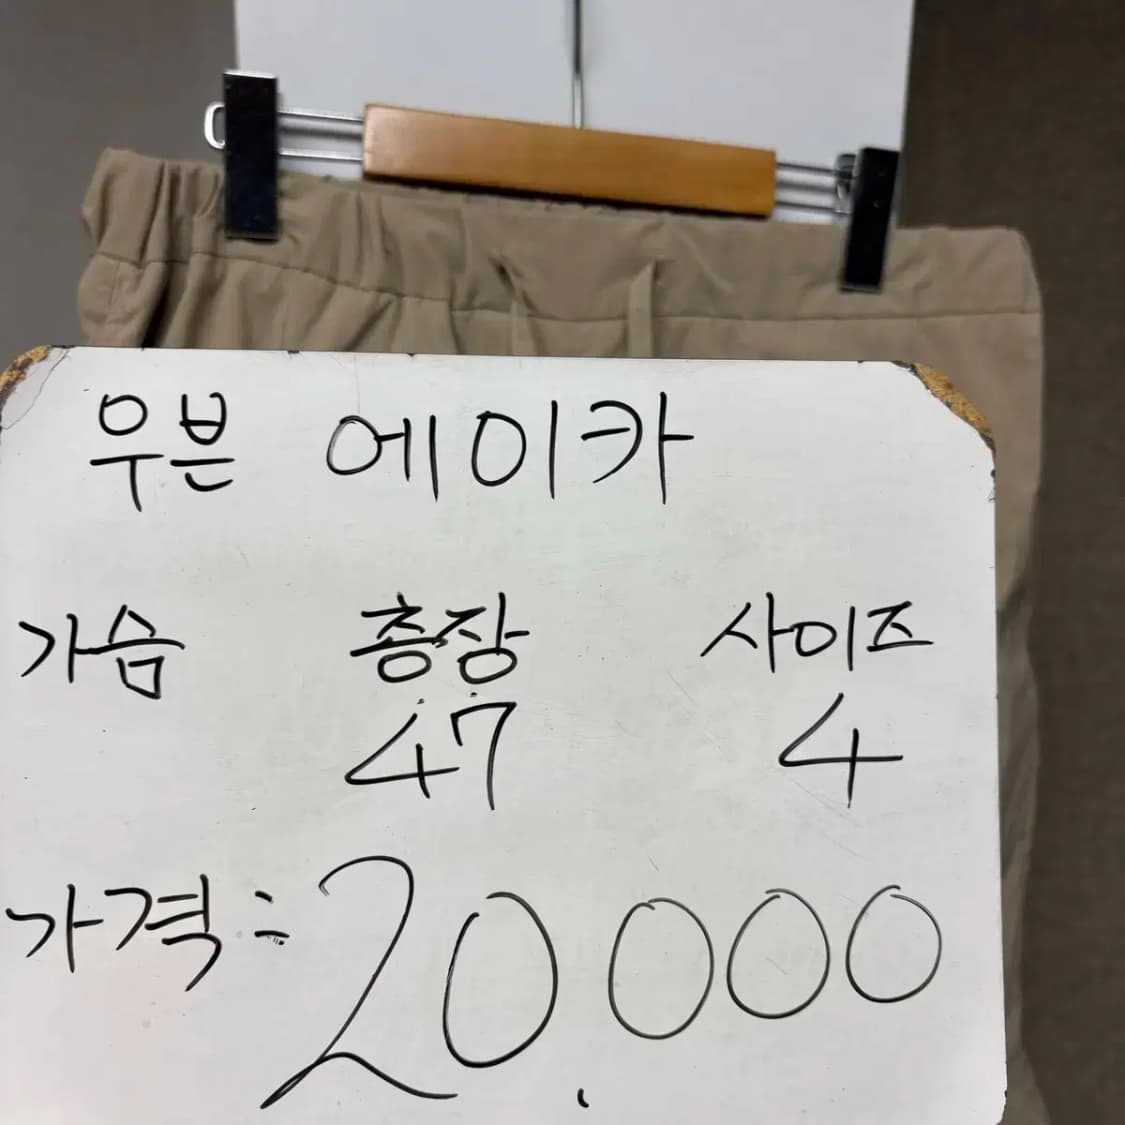 우븐 에이카
가슴 총장 사이즈
47 4
가격: 20,000